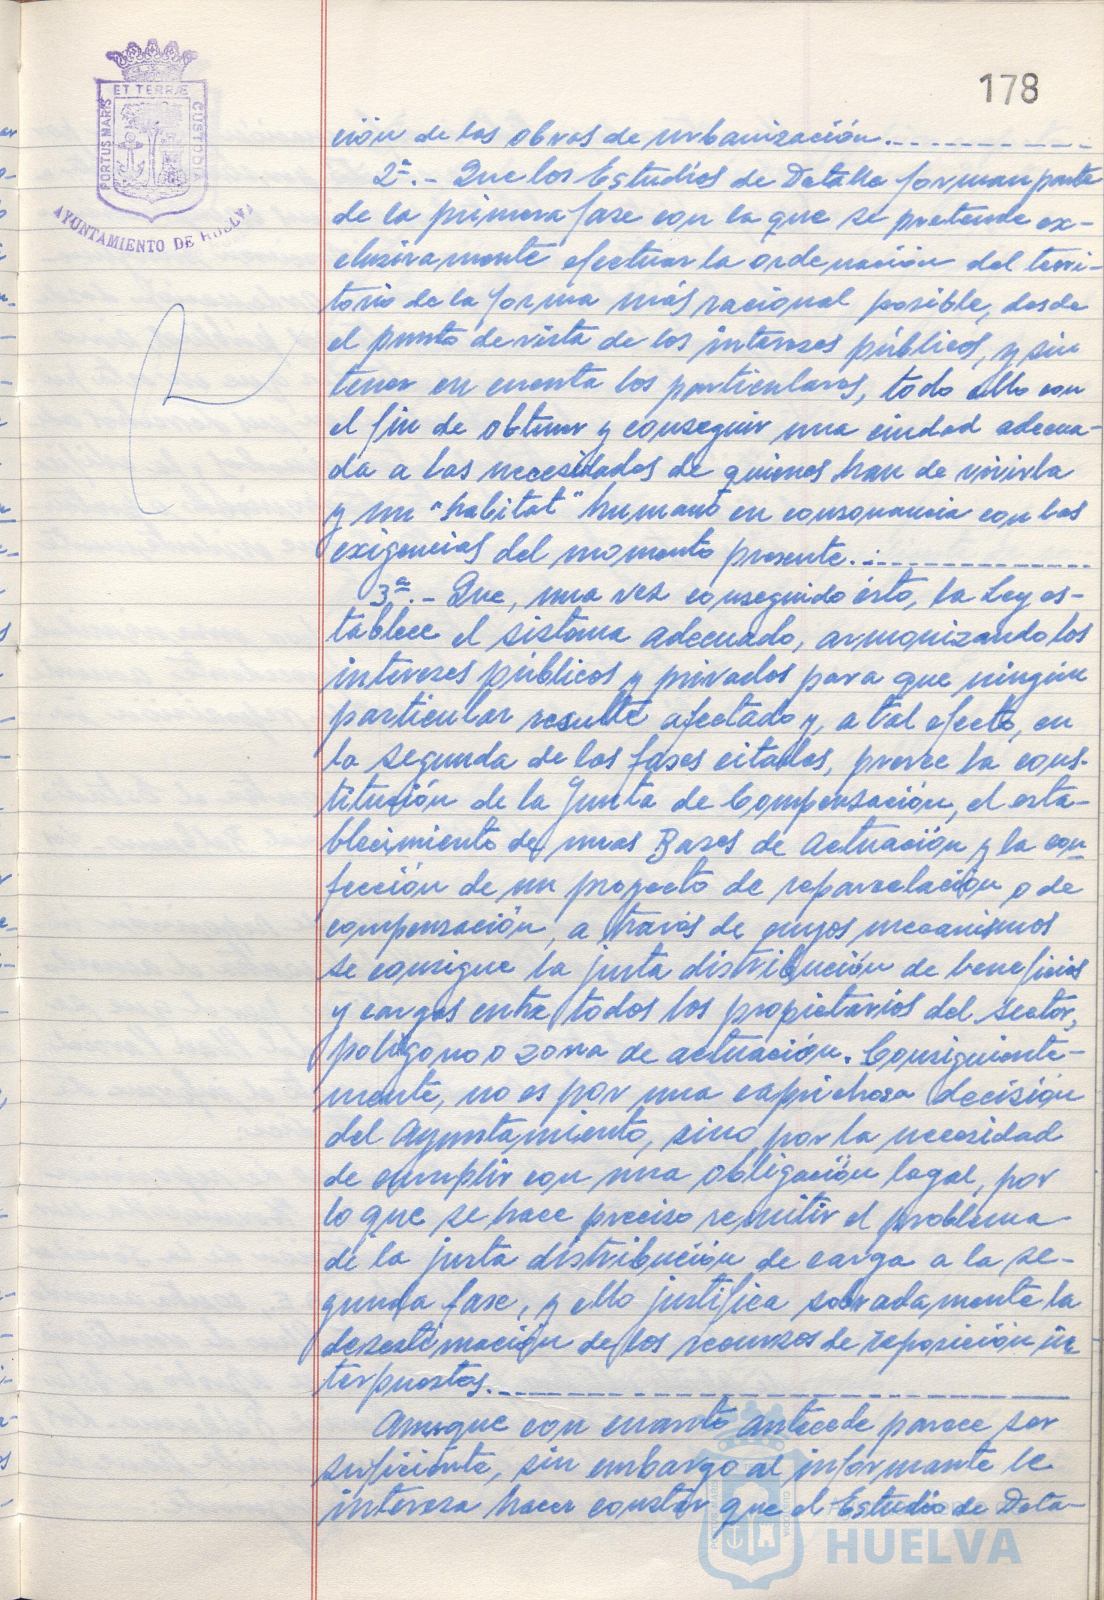 178
PORTUS MARIS ET TERRÆ CUSTODIA
AYUNTAMIENTO DE HUELVA
ción de las obras de urbanización.
2ª.- Que los Estudios de Detalle forman parte
de la primera fase con la que se pretende ex-
clusivamente efectuar la ordenación del terri-
torio de la forma más racional posible, desde
el punto de vista de los intereses públicos, y sin
tener en cuenta los particulares, todo ello con
el fin de obtener y conseguir una ciudad adecua-
da a las necesidades de quienes han de vivirla
y un "habitat" humano en consonancia con las
exigencias del momento presente.
3ª.- Que, una vez conseguido ésto, la Ley es-
tablece el sistema adecuado, armonizando los
intereses públicos y privados para que ningún
particular resulte afectado y, a tal efecto, en
la segunda de las fases citadas, prevee la cons-
titución de la Junta de Compensación, el esta-
blecimiento de unas Bases de Actuación y la con
fección de un proyecto de reparcelación o de
compensación, a través de cuyos mecanismos
se consigue la justa distribución de beneficios
y cargas entre todos los propietarios del Sector,
polígono o zona de actuación. Consiguiente-
mente, no es por una caprichosa decisión
del Ayuntamiento, sino por la necesidad
de cumplir con una obligación legal, por
lo que se hace preciso remitir el problema
de la justa distribución de carga a la se-
gunda fase, y ello justifica sobradamente la
desestimación de los recursos de reposición in
terpuestos.
Aunque con cuanto antecede parece ser
suficiente, sin embargo al informante le
interesa hacer constar que el Estudio de Deta-
HUELVA